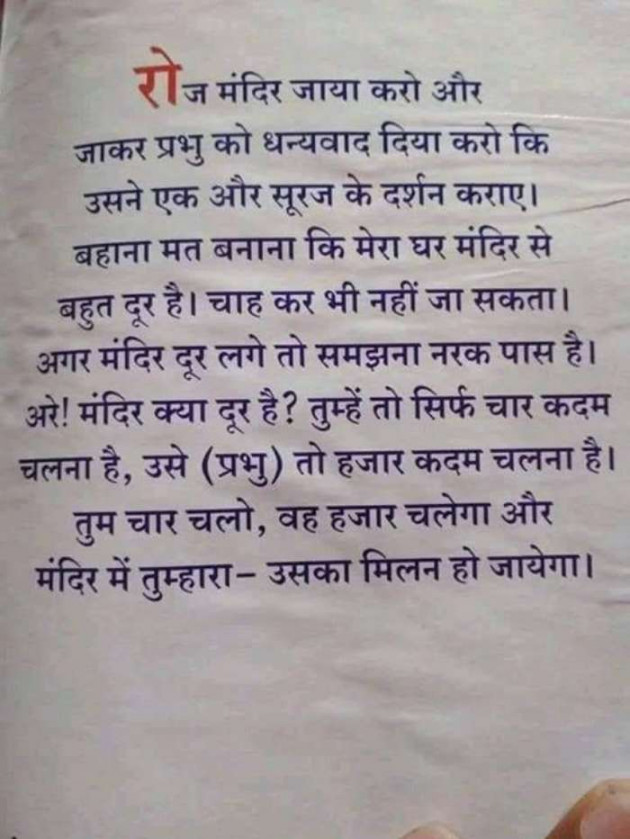 रोज मंदिर जाया करो और
जाकर प्रभु को धन्यवाद दिया करो कि
उसने एक और सूरज के दर्शन कराए।
बहाना मत बनाना कि मेरा घर मंदिर से
बहुत दूर है। चाह कर भी नहीं जा सकता।
अगर मंदिर दूर लगे तो समझना नरक पास है।
अरे! मंदिर क्या दूर है? तुम्हें तो सिर्फ चार कदम
चलना है, उसे (प्रभु) तो हजार कदम चलना है।
तुम चार चलो, वह हजार चलेगा और
मंदिर में तुम्हारा– उसका मिलन हो जायेगा।